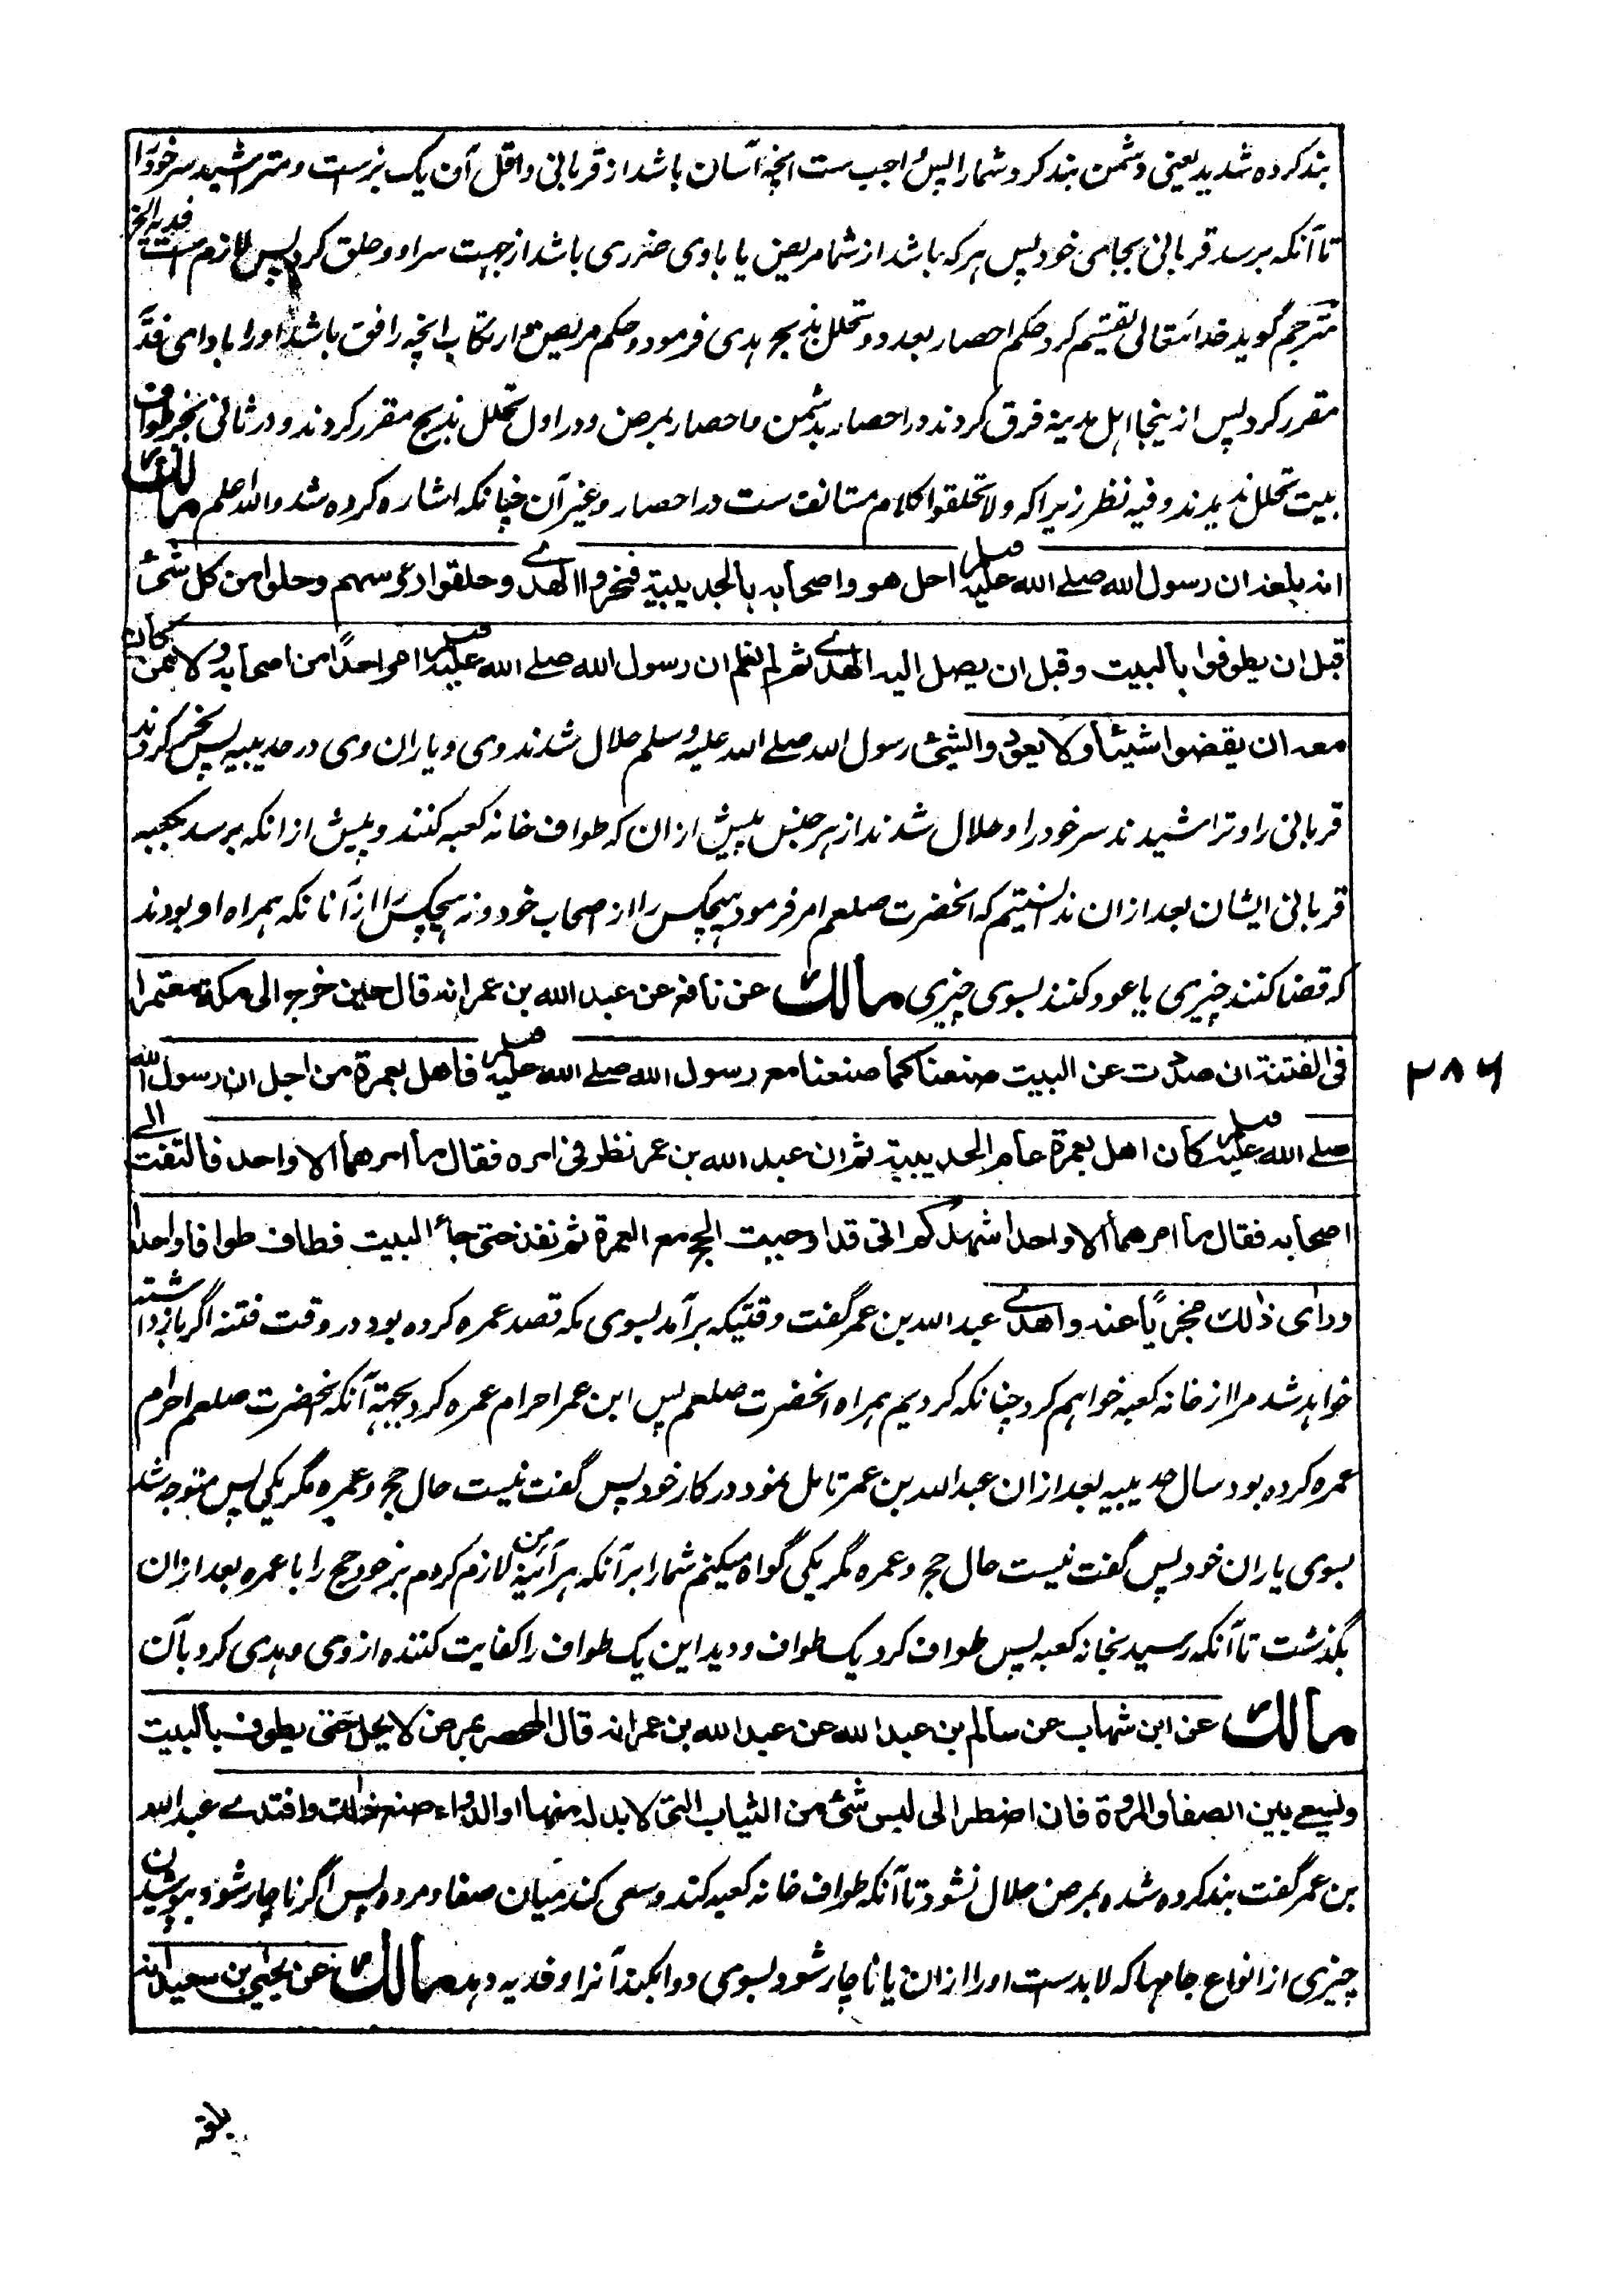 بند کرده شدید یعنی دشمن بند کرد شما را پس واجب ست انچه آسان باشد از قربانی و اقل آن یک بز ست و متراشید سر خود را
تا آنکه برسد قربانی بجای خود پس هر که باشد از شما مریض یا با وی ضرری باشد از جهت سر او و حلق کرد پس لازم است فدیه الخ
مترجم گوید خدا تعالی تقسیم کرد حکم احصار بعدو و تحلل بذبح هدی فرمود و حکم مریض ارتکاب انچه رافق باشد او را با دای فدیه
مقرر کرد پس ازینجا اهل مدینه فرق کردند در احصار بدشمن و احصار بمرض و در اول تحلل بذبح مقرر کردند و در ثانی بجز طواف
بیت تحلل ندیدند و فیه نظر زیرا که ولا تحلقوا کلام مستانف ست در احصار و غیر آن چنانکه اشاره کرده شد والله اعلم مالك
انه بلغه ان رسول الله صلے الله علیه وسلم احل هو واصحابه بالحدیبیة فنحروا الهدے وحلقوا رءوسهم وحلوا من كل شئ
قبل ان یطوفوا بالبیت وقبل ان یصل الیه الهدے ثم لم نعلم ان رسول الله صلے الله علیه وسلم امر احدًا من اصحابه ولا ممن كان
معه ان یقضوا شیئا ولا یعودوا لشئ رسول الله صلے الله علیه وسلم حلال شدند وی و یاران وی در حدیبیه پس نحر کردند
قربانی را و تراشیدند سر خود را و حلال شدند از هر جنس پیش ازان که طواف خانه کعبه کنند و پیش ازانکه برسد بکعبه
قربانی ایشان بعد ازان ندانستیم که انحضرت صلعم امر فرمود هیچکس را از اصحاب خود و نه هیچکس را از آنانکه همراه او بودند
که قضا کنند چیزی یا عود کنند بسوی چیزی مالك عن نافع عن عبد الله بن عمر انه قال حین خرج الی مكة معتمرا
فی الفتنة ان صددت عن البیت صنعنا كما صنعنا مع رسول الله صلے الله علیه وسلم فاهل بعمرة من اجل ان رسول الله
صلے الله علیه وسلم كان اهل بعمرة عام الحدیبیة ثم ان عبد الله بن عمر نظر فی امره فقال ما امرهما الا واحد فالتفت الے
اصحابه فقال ما امرهما الا واحد اشهدكم انی قد اوجبت الحج مع العمرة ثم نفذ حتی جاء البیت فطاف طوافا واحدا
ورای ذلك مجزیًا عنه واهدے عبد الله بن عمر گفت وقتیکه برآمد بسوی مکه قصد عمره کرده بود در وقت فتنه اگر بازداشته
خواهد شد مرا از خانه کعبه خواهم کرد چنانکه کردیم همراه انحضرت صلعم پس ابن عمر احرام عمره کرد بجهته آنکه انحضرت صلعم احرام
عمره کرده بود سال حدیبیه بعد ازان عبد الله بن عمر تامل نمود در کار خود پس گفت نیست حال حج و عمره مگر یکی پس متوجه شد
بسوی یاران خود پس گفت نیست حال حج و عمره مگر یکی گواه میکنم شما را بر آنکه هر آئینه من لازم کردم بر خود حج را با عمره بعد ازان
بگذشت تا آنکه رسید بخانه کعبه پس طواف کرد یک طواف و دید این یک طواف را کفایت کننده از وی و هدی کرد بآن
مالك عن ابن شهاب عن سالم بن عبد الله عن عبد الله بن عمر انه قال المحصر بمرض لا یحل حتی یطوف بالبیت
ویسعے بین الصفا والمروة فان اضطر الی لبس شئ من الثیاب التی لا بد له منها او الدواء صنع ذلك وافتدے عبد الله
بن عمر گفت بند کرده شده بمرض حلال نشود تا آنکه طواف خانه کعبه کند و سعی کند میان صفا و مروه پس اگر ناچار شود بپوشیدن
چیزی از انواع جامها که لابدست او را ازان یا ناچار شود بسوی دوا بکند آنرا و فدیه دهد مالك عن یحیی بن سعید انه
۲۸۶